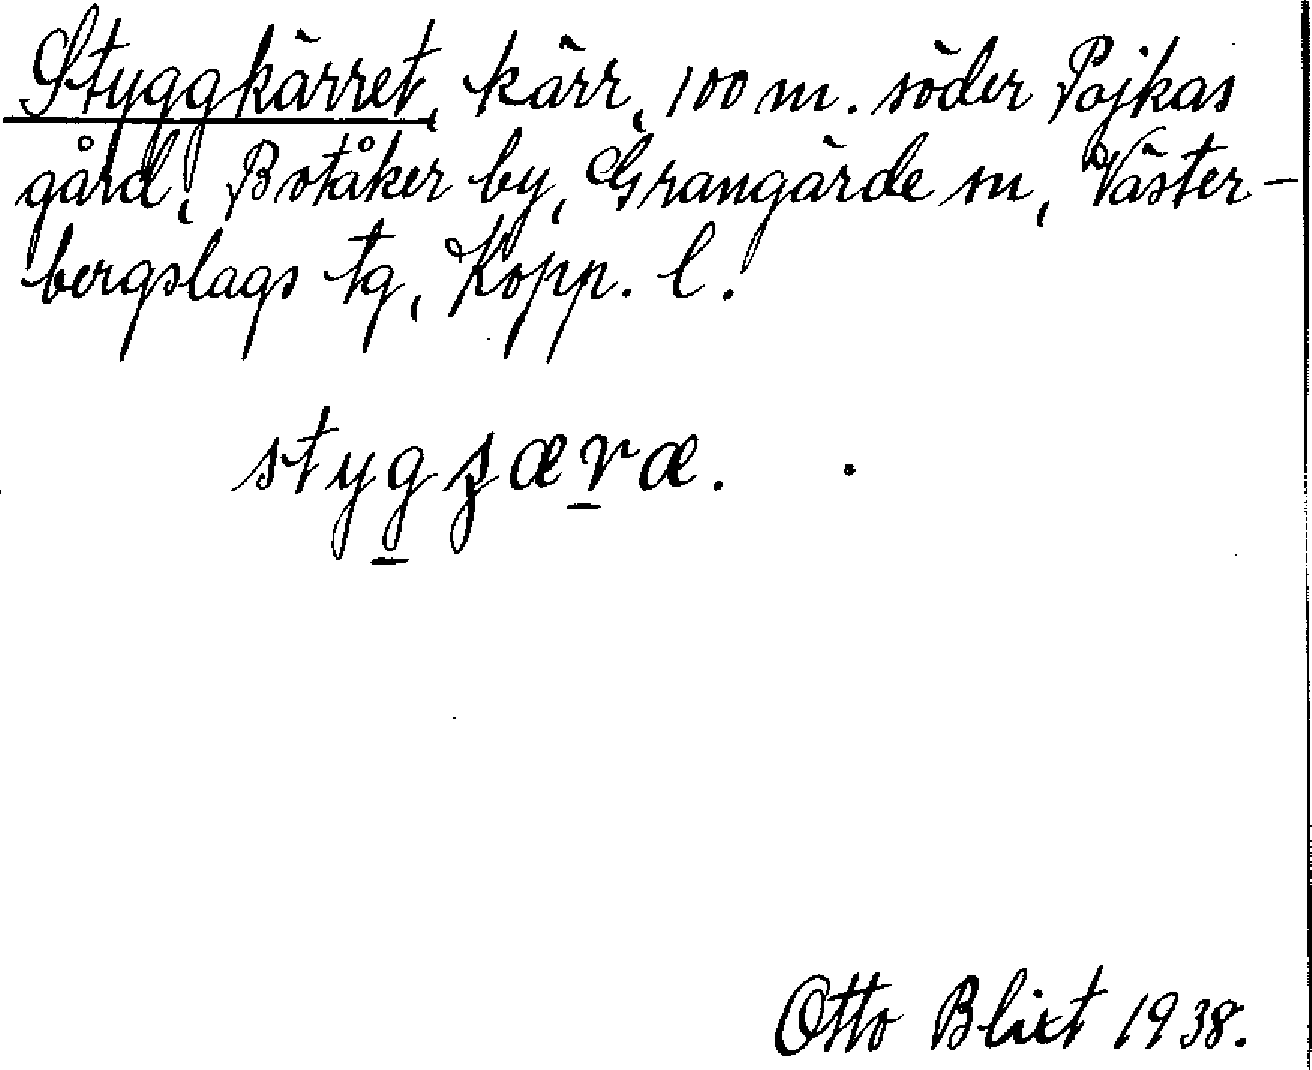 Styggkärret, kärr, 100 m. söder Pojkas
gård, Botåker by, Grangärde sn, Väster-
bergslags tg, Kopp. l.
stygʂæræ.
Otto Blixt 1938.